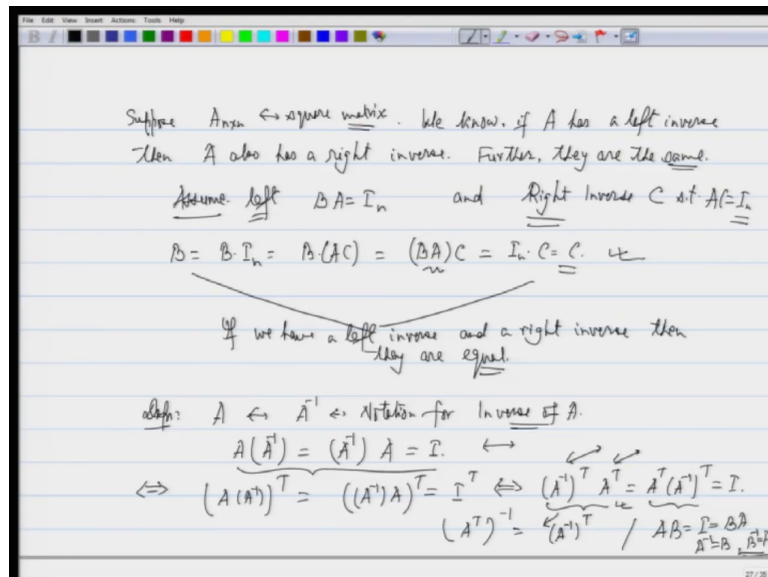 File Edit View Insert Actions Tools Help
B I
Suppose Anxn ↔ square matrix. We know, if A has a left inverse
then A also has a right inverse. Further, they are the same.
Assume left BA = In and Right Inverse C s.t AC = In
B = B·In = B·(AC) = (BA)C = In·C = C.
If we have a left inverse and a right inverse then
they are equal.
Defn: A ↔ A⁻¹ ↔ Notation for Inverse of A.
A(A⁻¹) = (A⁻¹) A = I. ↔
⇔ (A(A⁻¹))ᵀ = ((A⁻¹)A)ᵀ = Iᵀ ⇔ (A⁻¹)ᵀ Aᵀ = Aᵀ(A⁻¹)ᵀ = I.
(Aᵀ)⁻¹ = (A⁻¹)ᵀ / AB = I = BA
A⁻¹ = B, B⁻¹ = A
27 / 35